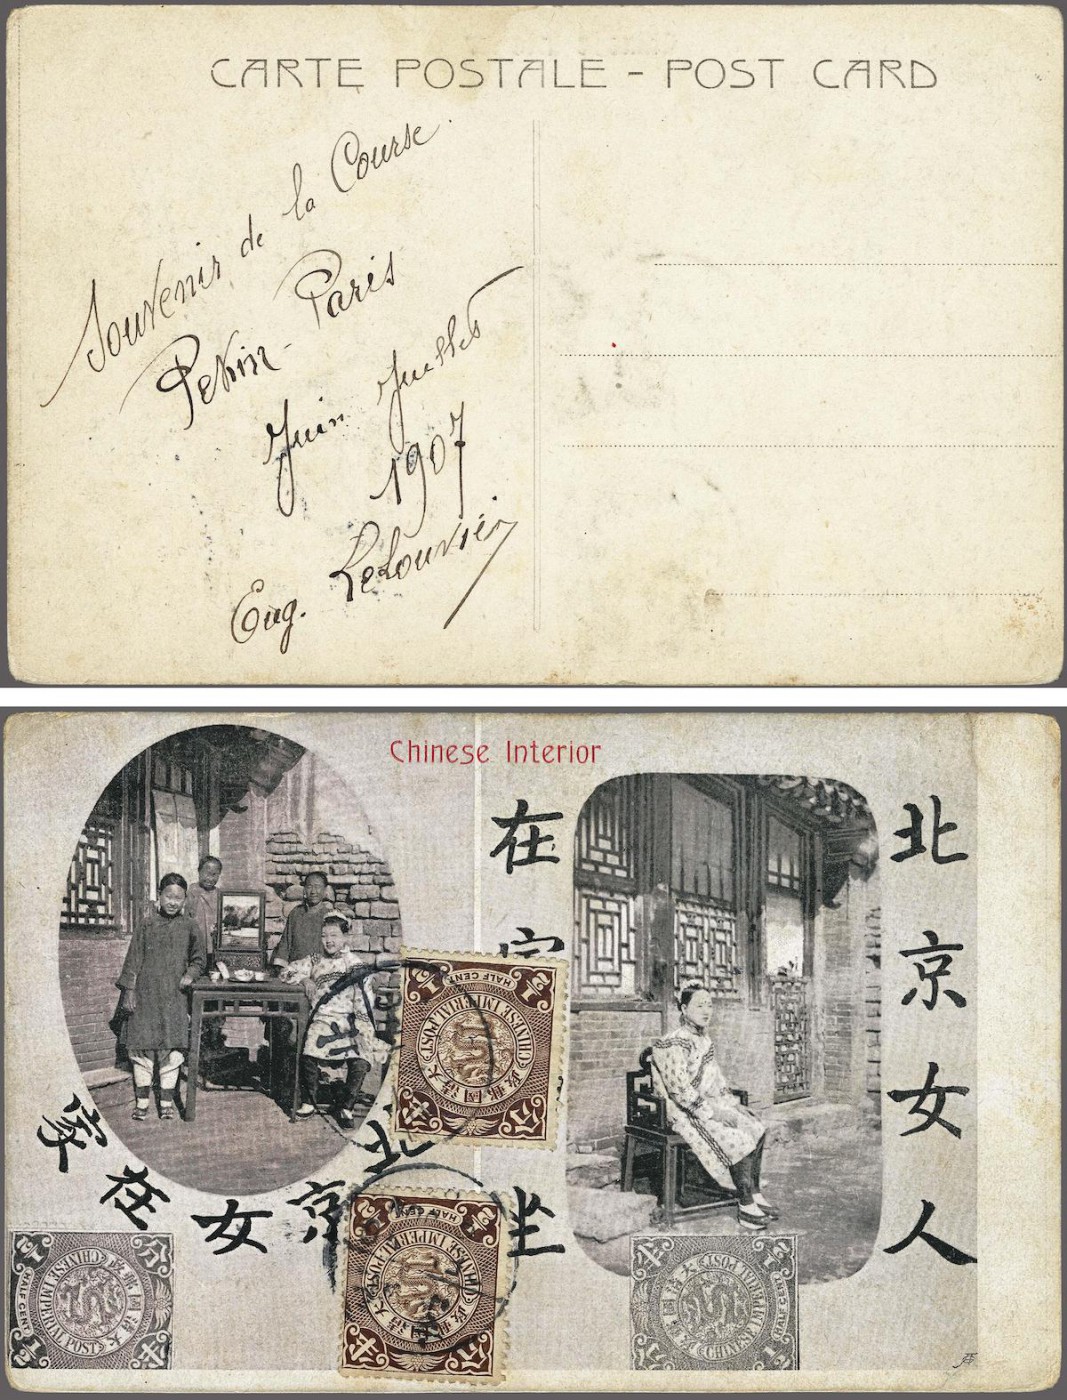 CARTE POSTALE - POST CARD
Souvenir de la Course
Pekin - Paris
Juin Juillet
1907
Eug. Lelouvier
Chinese Interior
北京女人
在家
坐
北京女在家
HALF CENT
CHINESE IMPERIAL POST
大清國郵政
半分
HALF CENT
CHINESE IMPERIAL POST
大清國郵政
半分
HALF CENT
CHINESE IMPERIAL POST
大清國郵政
半分
HALF CENT
CHINESE IMPERIAL POST
大清國郵政
半分